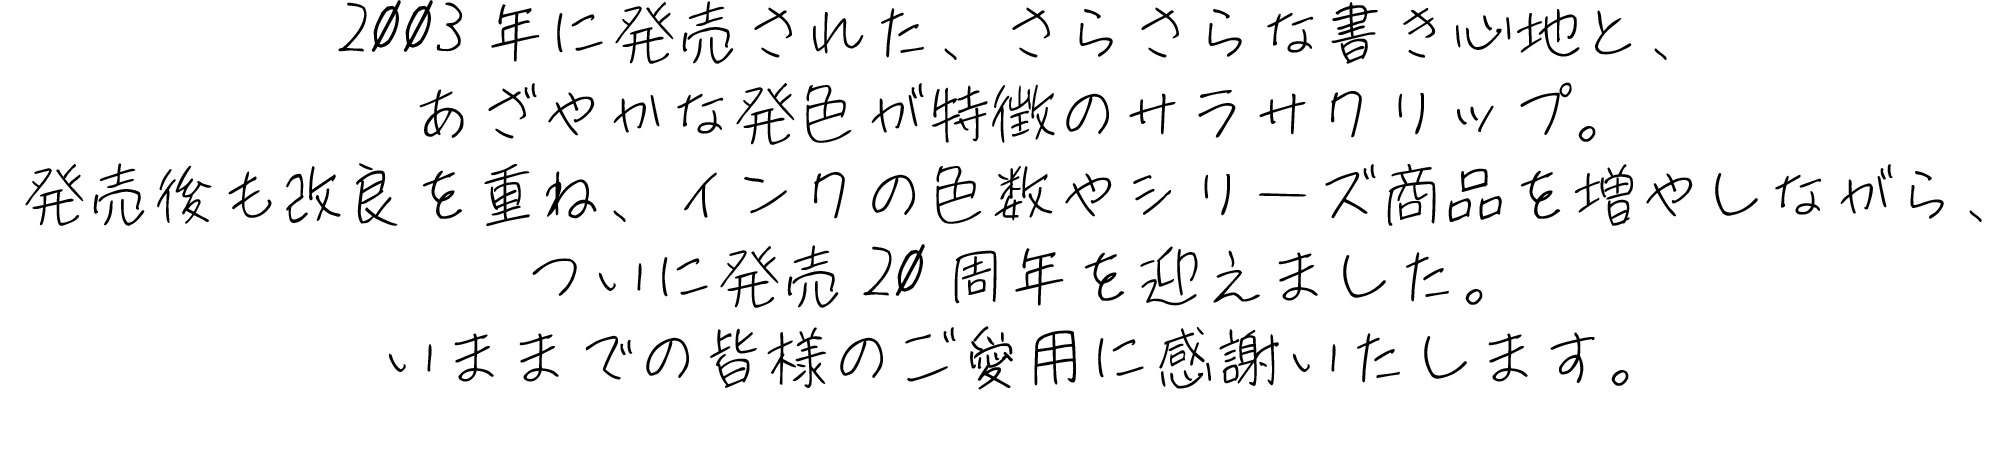 2003年に発売された、さらさらな書き心地と、
あざやかな発色が特徴のサラサクリップ。
発売後も改良を重ね、インクの色数やシリーズ商品を増やしながら、
ついに発売20周年を迎えました。
いままでの皆様のご愛用に感謝いたします。